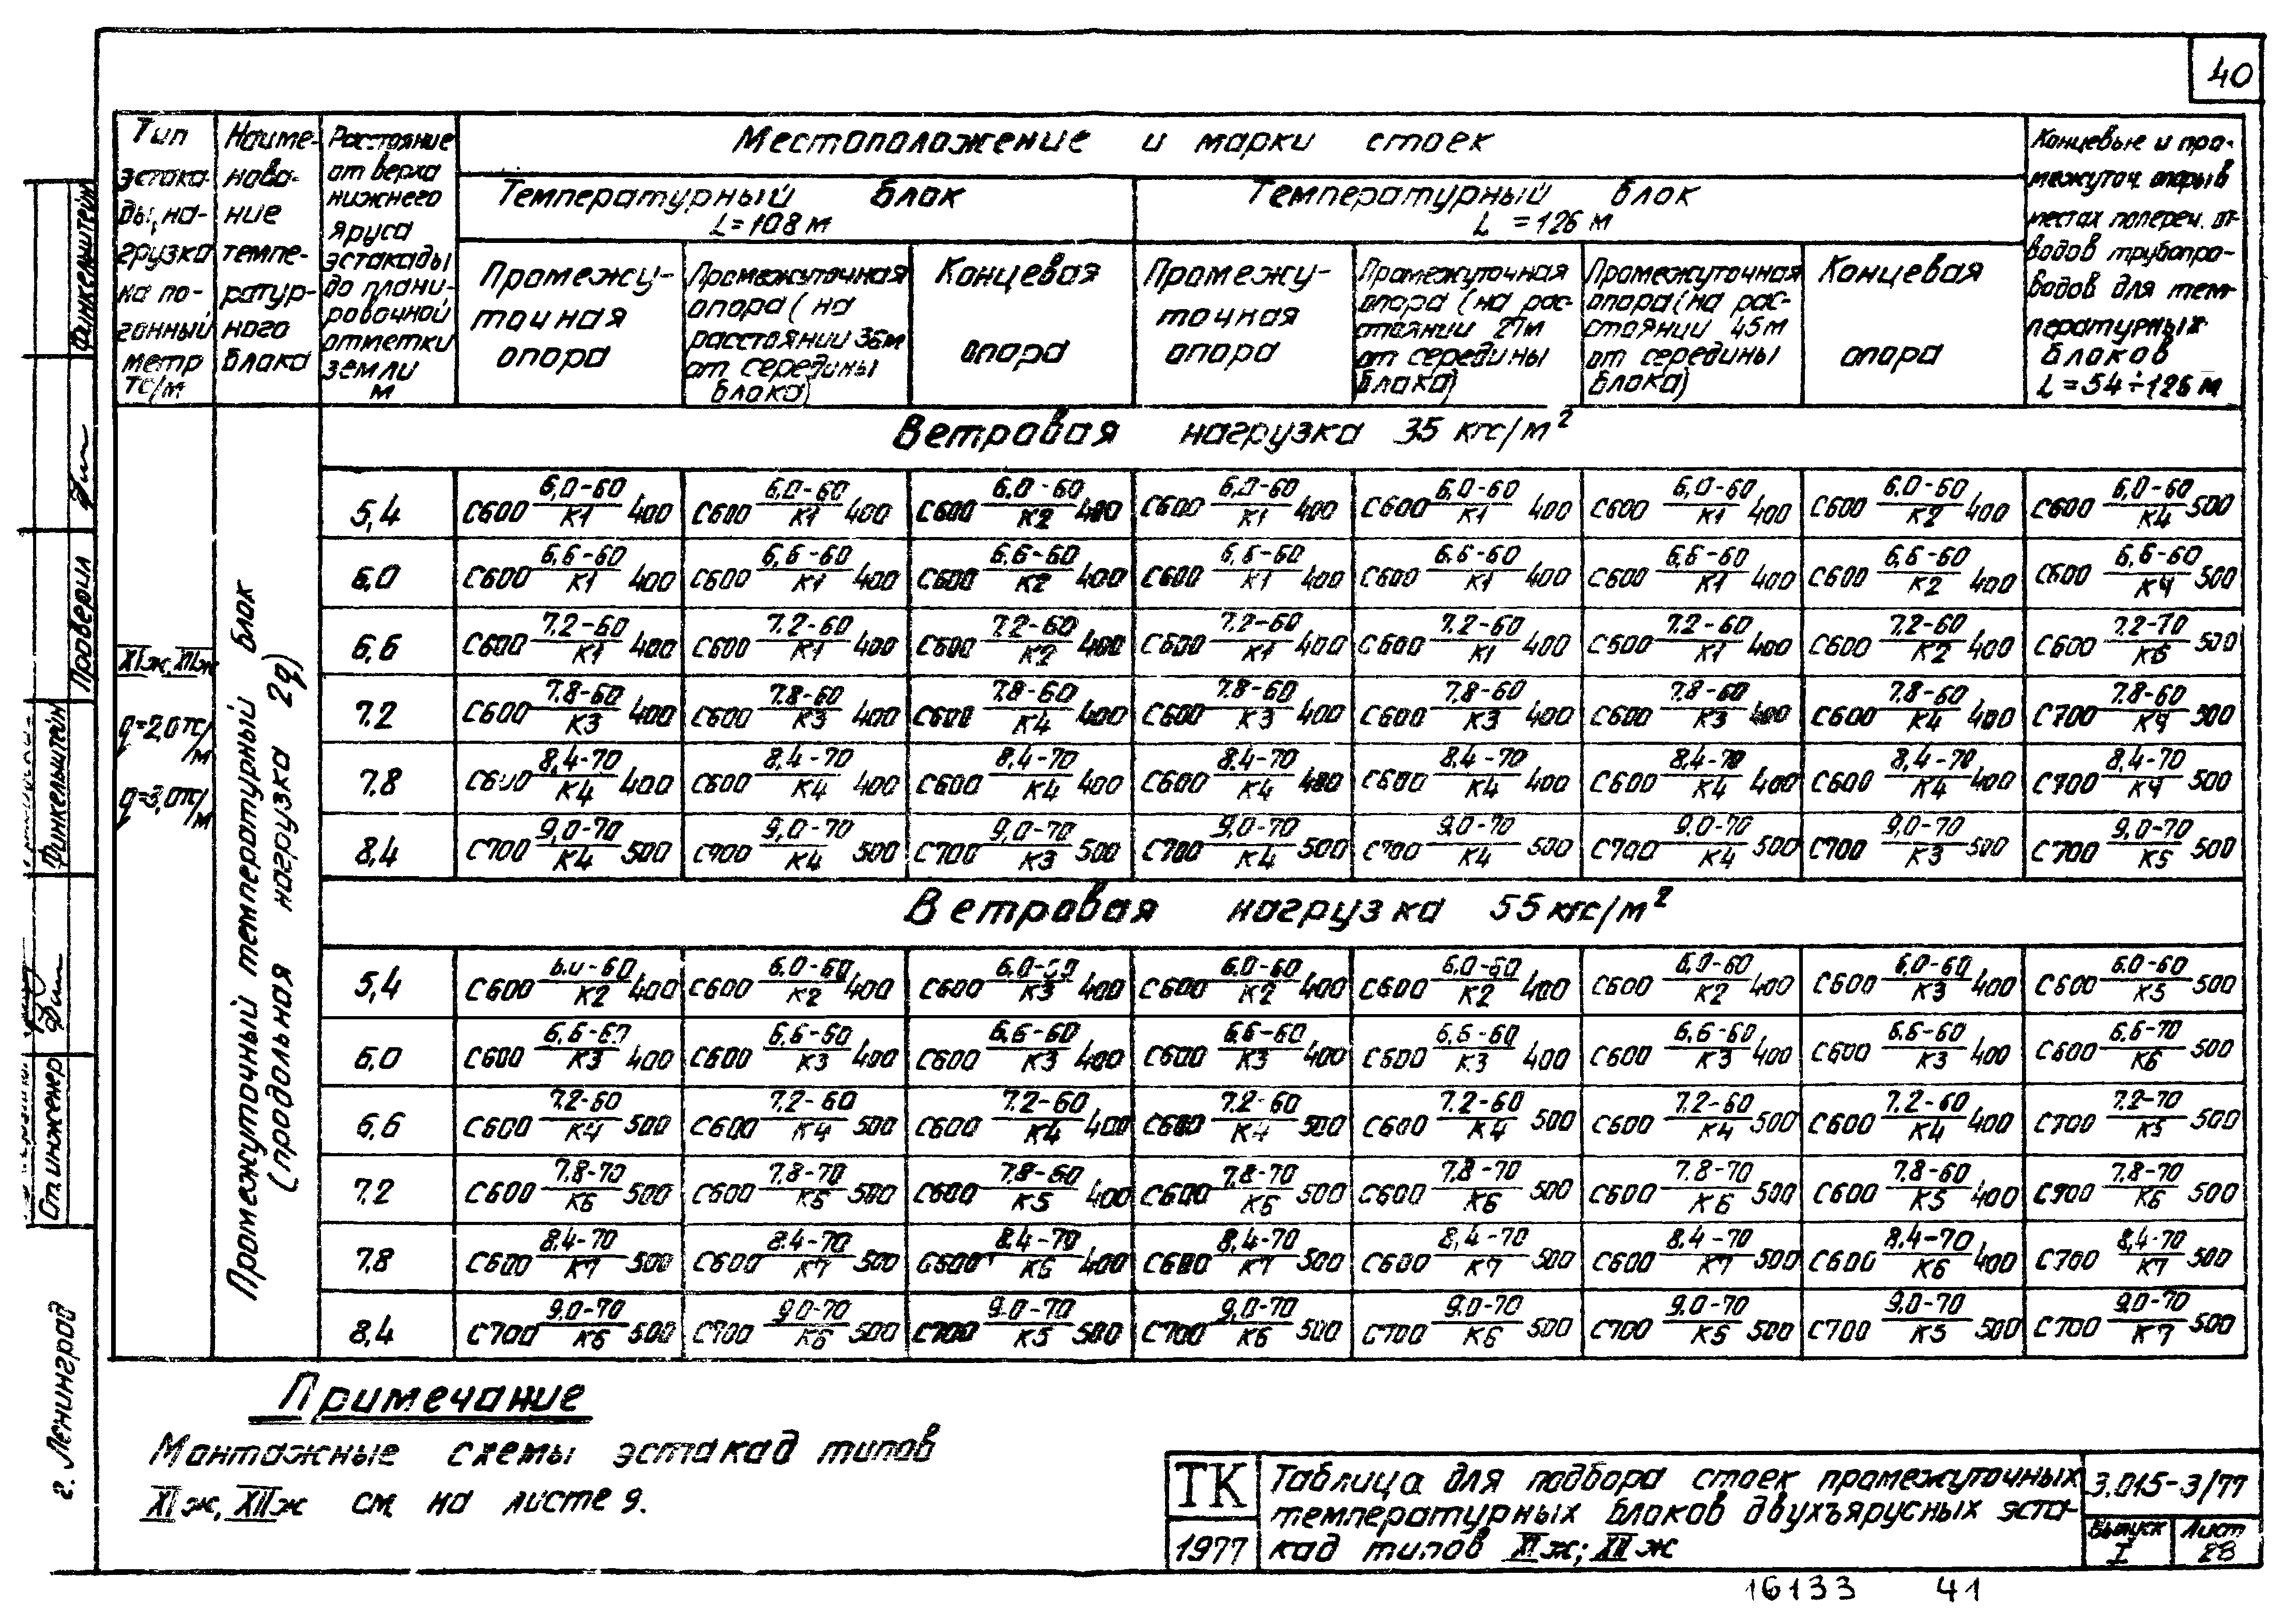 40
Тип эстакады, нагрузка на погонный метр тс/м
Наименование температурного блока
Расстояние от верха нижнего яруса эстакады до планировочной отметки земли м
Местоположение и марки стоек
Температурный блок L=108 м
Температурный блок L=126 м
Промежуточная опора
Промежуточная опора (на расстоянии 36м от середины блока)
Концевая опора
Промежуточная опора
Промежуточная опора (на расстоянии 27м от середины блока)
Промежуточная опора (на расстоянии 45м от середины блока)
Концевая опора
Концевые и промежуточ. опоры в местах попереч. отводов трубопроводов для температурных блоков L=54÷126 м
XIж, XIIж
q=2,0тс/м
q=3,0тс/м
Промежуточный температурный блок
(продольная нагрузка 2q)
Ветровая нагрузка 35 кгс/м²
5,4 С600 6,0-60/К1 400 С600 6,0-60/К1 400 С600 6,0-60/К2 400 С600 6,0-60/К1 400 С600 6,0-60/К1 400 С600 6,0-60/К1 400 С600 6,0-60/К2 400 С600 6,0-60/К4 500
6,0 С600 6,6-60/К1 400 С600 6,6-60/К1 400 С600 6,6-60/К2 400 С600 6,6-60/К1 400 С600 6,6-60/К1 400 С600 6,6-60/К1 400 С600 6,6-60/К2 400 С600 6,6-60/К4 500
6,6 С600 7,2-60/К1 400 С600 7,2-60/К1 400 С600 7,2-60/К2 400 С600 7,2-60/К1 400 С600 7,2-60/К1 400 С600 7,2-60/К1 400 С600 7,2-60/К2 400 С600 7,2-70/К6 500
7,2 С600 7,8-60/К3 400 С600 7,8-60/К3 400 С600 7,8-60/К4 400 С600 7,8-60/К3 400 С600 7,8-60/К3 400 С600 7,8-60/К3 400 С600 7,8-60/К4 400 С700 7,8-60/К4 500
7,8 С600 8,4-70/К4 400 С600 8,4-70/К4 400 С600 8,4-70/К4 400 С600 8,4-70/К4 400 С600 8,4-70/К4 400 С600 8,4-70/К4 400 С600 8,4-70/К4 400 С700 8,4-70/К4 500
8,4 С700 9,0-70/К4 500 С700 9,0-70/К4 500 С700 9,0-70/К3 500 С700 9,0-70/К4 500 С700 9,0-70/К4 500 С700 9,0-70/К4 500 С700 9,0-70/К3 500 С700 9,0-70/К5 500
Ветровая нагрузка 55 кгс/м²
5,4 С600 6,0-60/К2 400 С600 6,0-60/К2 400 С600 6,0-60/К3 400 С600 6,0-60/К2 400 С600 6,0-60/К2 400 С600 6,0-60/К2 400 С600 6,0-60/К3 400 С600 6,0-60/К5 500
6,0 С600 6,6-60/К3 400 С600 6,6-60/К3 400 С600 6,6-60/К3 400 С600 6,6-60/К3 400 С600 6,6-60/К3 400 С600 6,6-60/К3 400 С600 6,6-60/К3 400 С600 6,6-70/К6 500
6,6 С600 7,2-60/К4 500 С600 7,2-60/К4 500 С600 7,2-60/К4 400 С600 7,2-60/К4 500 С600 7,2-60/К4 500 С600 7,2-60/К4 500 С600 7,2-60/К4 400 С700 7,2-70/К5 500
7,2 С600 7,8-70/К6 500 С600 7,8-70/К5 500 С600 7,8-60/К5 400 С600 7,8-70/К6 500 С600 7,8-70/К6 500 С600 7,8-70/К6 500 С600 7,8-60/К5 400 С700 7,8-70/К6 500
7,8 С600 8,4-70/К7 500 С600 8,4-70/К7 500 С600 8,4-70/К6 400 С600 8,4-70/К7 500 С600 8,4-70/К7 500 С600 8,4-70/К7 500 С600 8,4-70/К6 400 С700 8,4-70/К7 500
8,4 С700 9,0-70/К6 500 С700 9,0-70/К6 500 С700 9,0-70/К5 500 С700 9,0-70/К6 500 С700 9,0-70/К6 500 С700 9,0-70/К6 500 С700 9,0-70/К5 500 С700 9,0-70/К7 500
Примечание
Монтажные схемы эстакад типов
XIж, XIIж см. на листе 9.
ТК
1977
Таблица для подбора стоек промежуточных
температурных блоков двухъярусных эста-
кад типов XIж; XIIж
3.015-3/77
Выпуск I
Лист 28
16133 41
Финкельштейн
Проверил
Финкельштейн
Ст. инженер
г. Ленинград